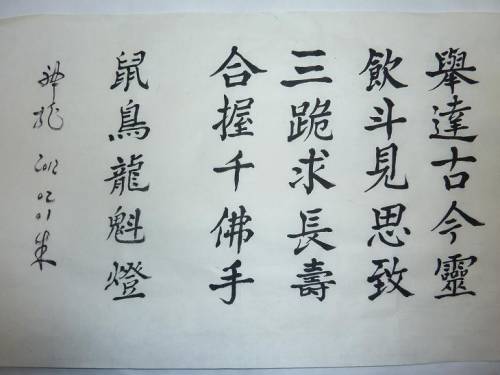 舉達古今靈
飲斗見思致
三跪求長壽
合握千佛手
鼠鳥龍魁燈
2012 02.01